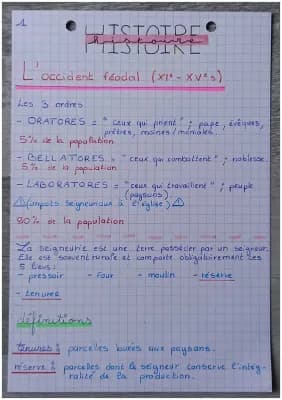 1
HISTOIRE
histoire
L'occident féodal (XIe - XVe s)
Les 3 ordres
- ORATORES = "ceux qui prient" ; pape, évêques,
prêtres, moines/moniales.
5% de la population
- BELLATORES = "ceux qui combattent" ; noblesse
5% de la population
- LABORATORES = "ceux qui travaillent" ; peuple
(paysans)
⚠(impôts seigneuriaux à l'église)⚠
90% de la population
La seigneurie est une terre posséder par un seigneur.
Elle est souvent rurale et comporte obligatoirement ces
5 lieux :
- pressoir - four - moulin - réserve
- tenures
définitions
tenures : parcelles louées aux paysans.
réserve : parcelles dont le seigneur conserve l'intég-
ralité de la production.